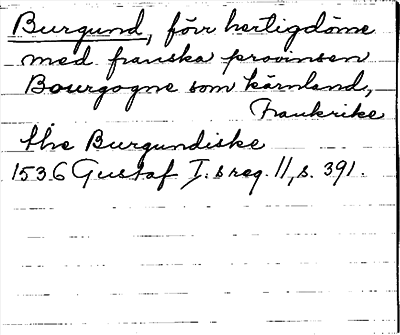 Burgund, förr hertigdöme
med franska provinsen
Bourgogne som kärnland,
Frankrike
the Burgundiske
1536 Gustaf I:s reg. 11, s. 391.